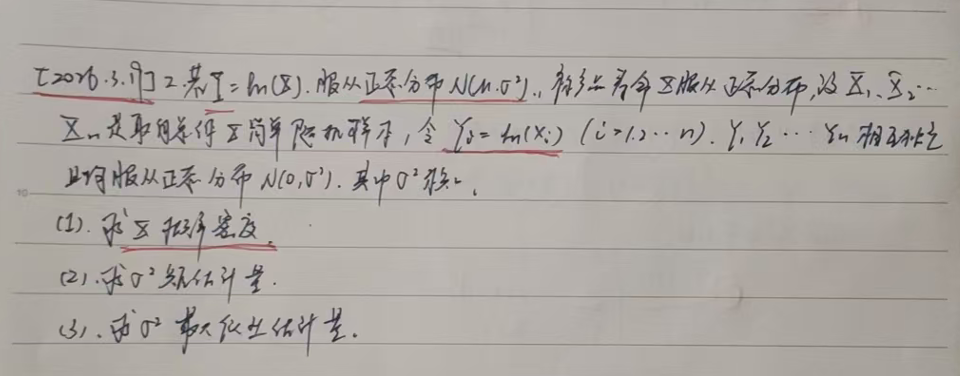 [2026.3.19] 2 若Y=ln(X).服从正态分布N(μ.σ²).,称总若令X服从正态分布,设X₁、X₂…
Xₙ是取自总体X简单随机样本,令Yᵢ=ln(Xᵢ)(i=1.2…n).Y₁Y₂…Yₙ相互独立
且均服从正态分布N(0,σ²).其中σ²未知.
10
(1).求X概率密度.
(2).求σ²矩估计量.
(3).求σ²最大似然估计量.